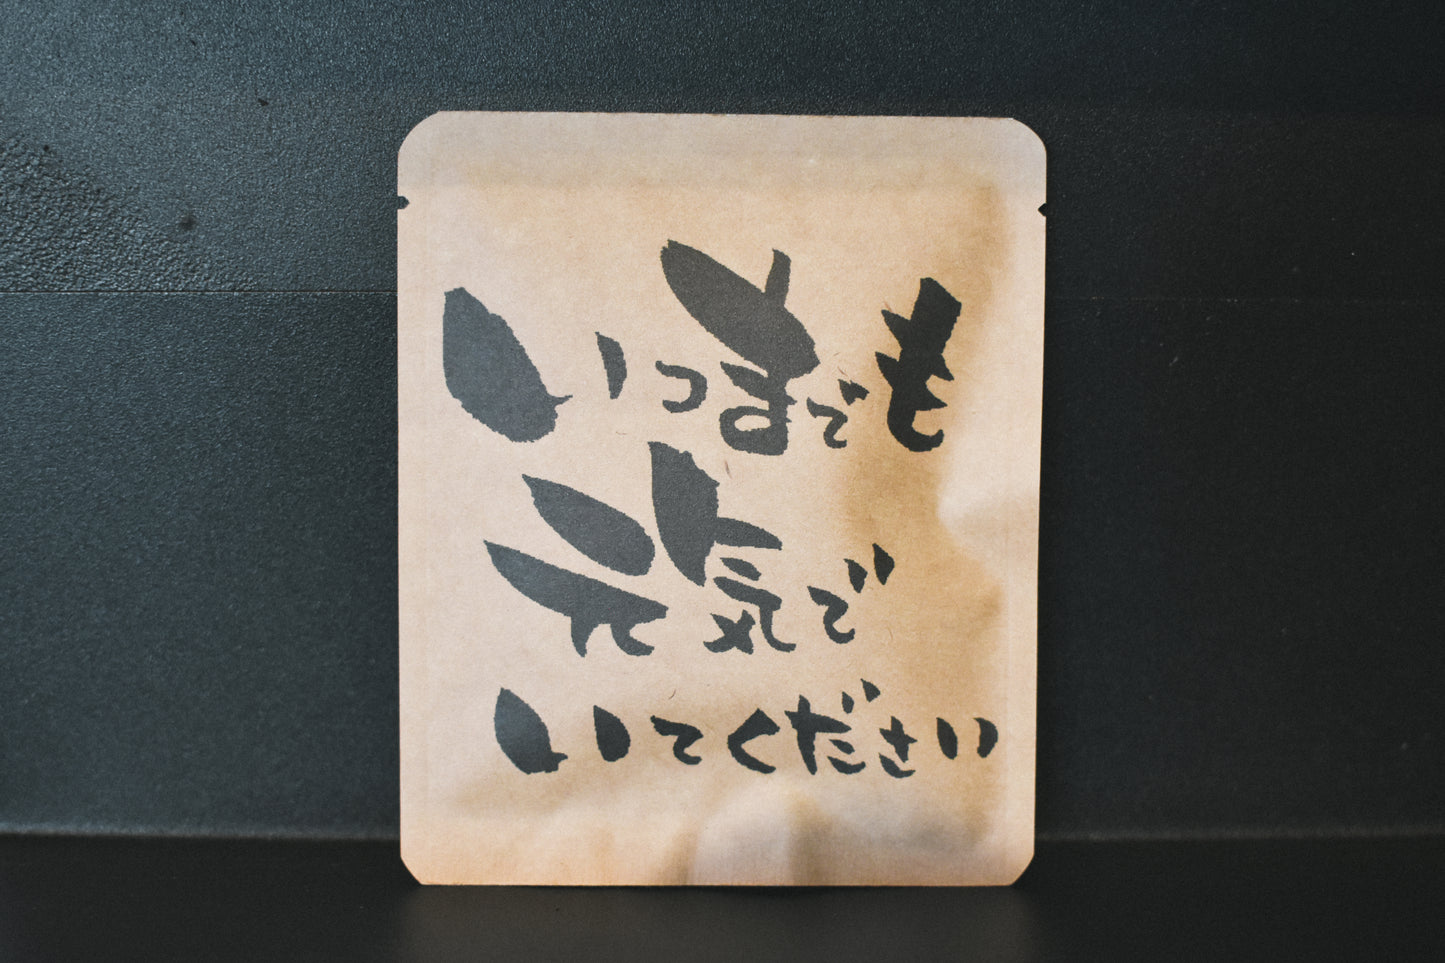 いつまでも
元気で
いてください